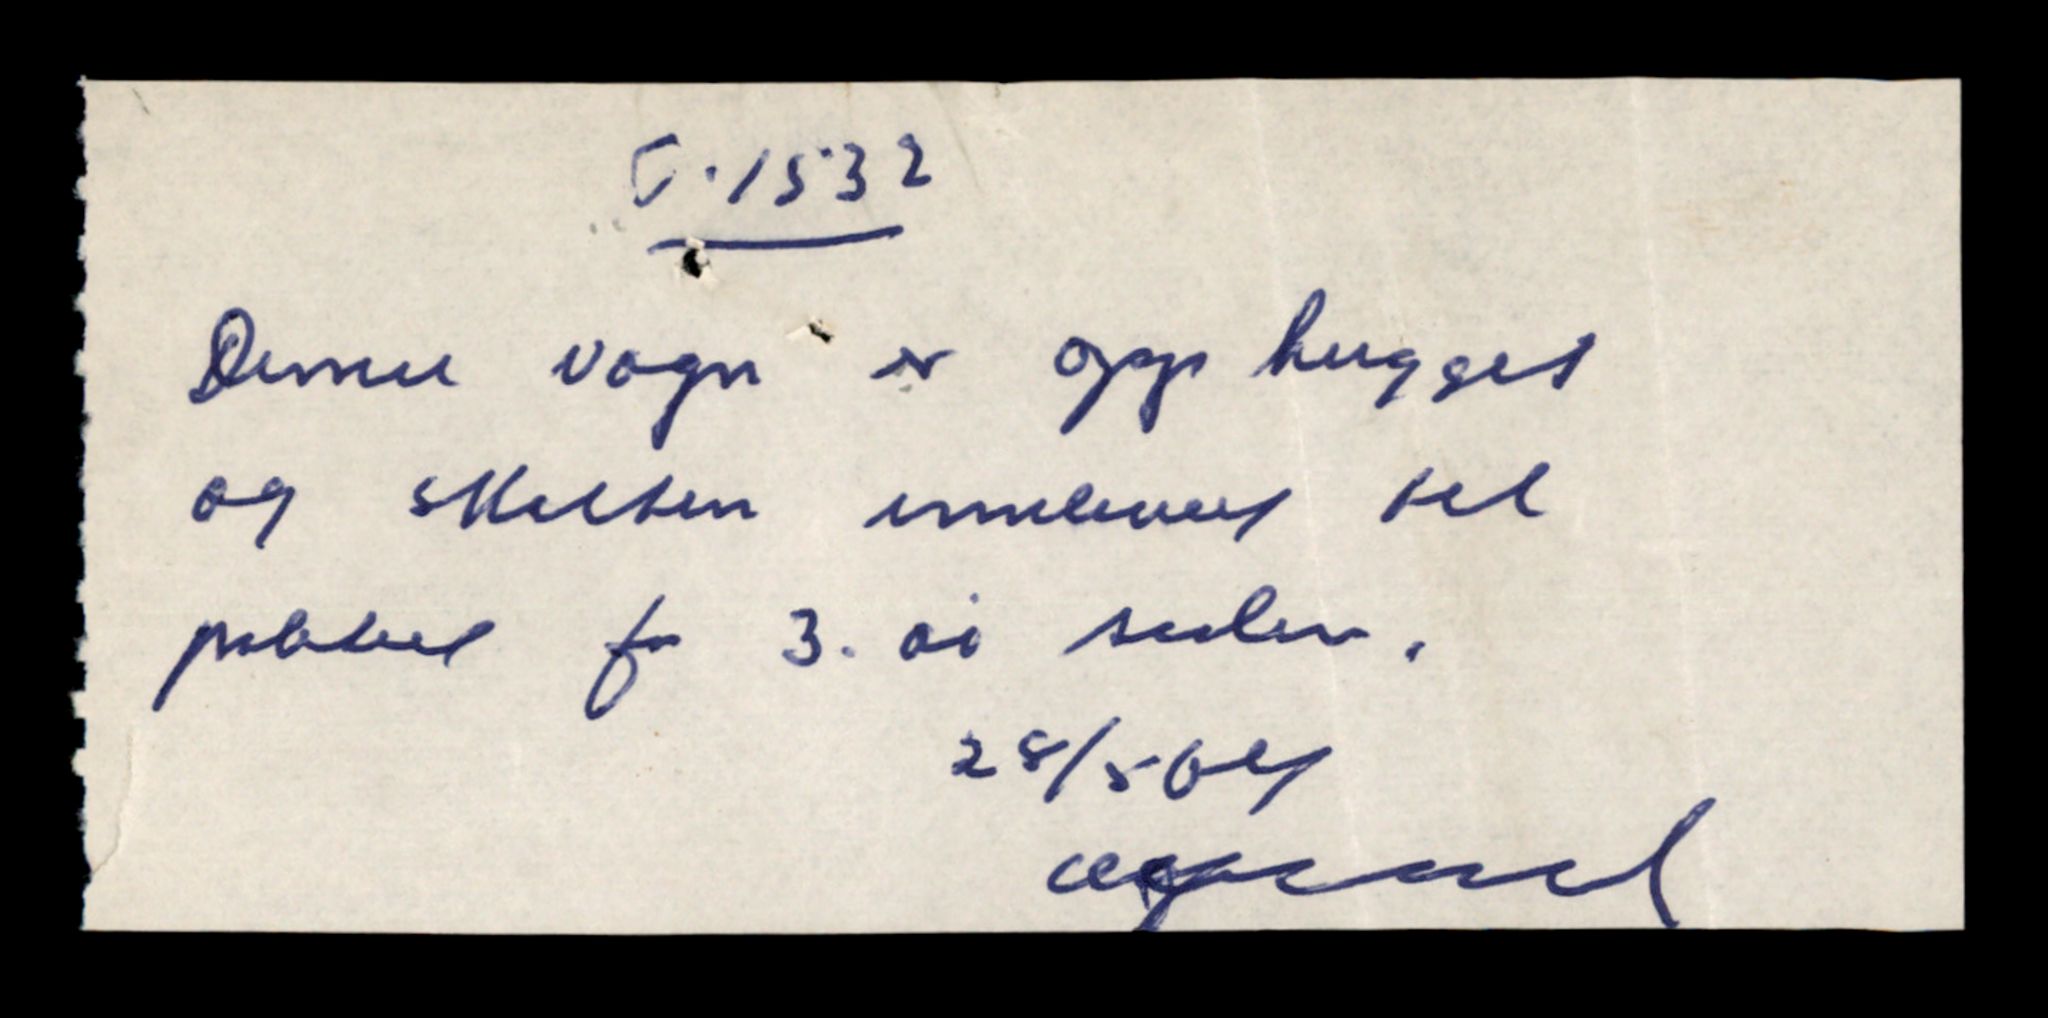 1532
Denne vogn er opphugget
og skilten innlevert til
politiet for 3. år siden.
28/5 64